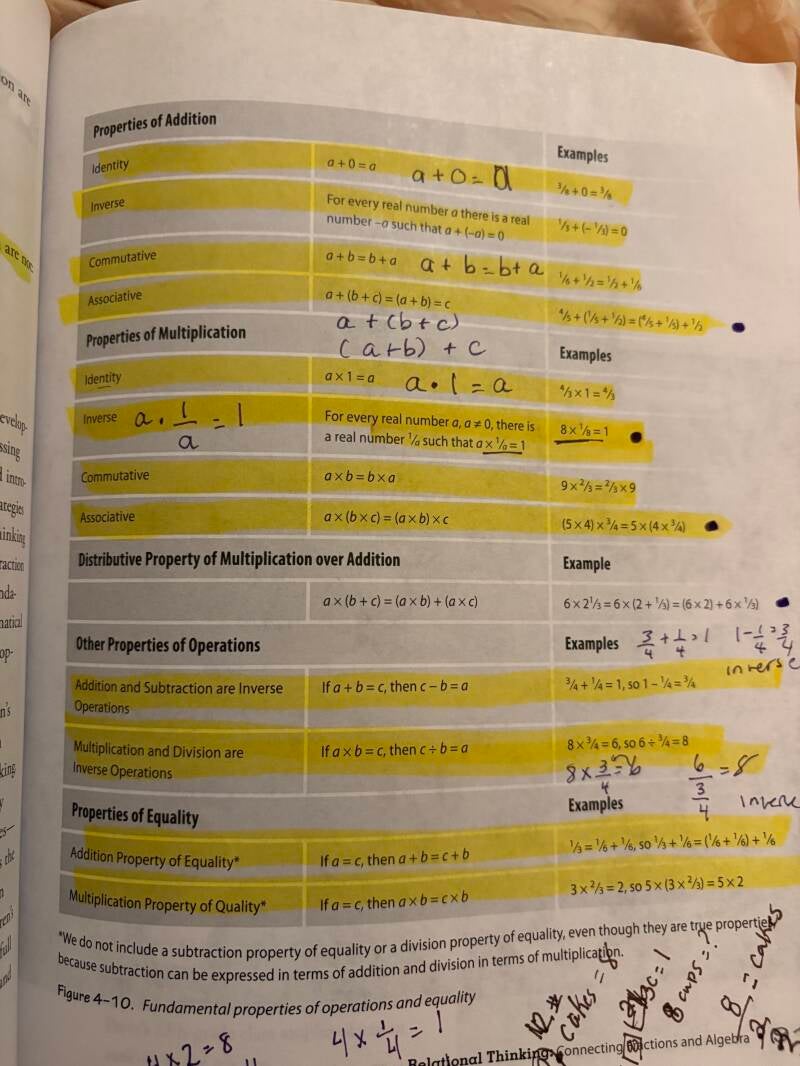 on are
Properties of Addition
Examples
Identity a + 0 = a a + 0 = a 3/8 + 0 = 3/8
Inverse For every real number a there is a real
number –a such that a + (–a) = 0 1/3 + (– 1/3) = 0
are not
Commutative a + b = b + a a + b = b + a 1/6 + 1/2 = 1/2 + 1/6
Associative a + (b + c) = (a + b) = c 4/5 + (1/5 + 1/2) = (4/5 + 1/5) + 1/2
a + (b + c)
(a + b) + c
Properties of Multiplication Examples
Identity a × 1 = a a • 1 = a 4/3 × 1 = 4/3
Inverse a • 1/a = 1 For every real number a, a ≠ 0, there is
a real number 1/a such that a × 1/a = 1 8 × 1/8 = 1
Commutative a × b = b × a 9 × 2/3 = 2/3 × 9
Associative a × (b × c) = (a × b) × c (5 × 4) × 3/4 = 5 × (4 × 3/4)
Distributive Property of Multiplication over Addition Example
a × (b + c) = (a × b) + (a × c) 6 × 2 1/3 = 6 × (2 + 1/3) = (6 × 2) + 6 × 1/3)
Other Properties of Operations Examples 3/4 + 1/4 = 1 1 - 1/4 = 3/4
inverse
Addition and Subtraction are Inverse
Operations If a + b = c, then c – b = a 3/4 + 1/4 = 1, so 1 – 1/4 = 3/4
Multiplication and Division are
Inverse Operations If a × b = c, then c ÷ b = a 8 × 3/4 = 6, so 6 ÷ 3/4 = 8
8 × 3/4 = 6 6/3/4 = 8
Inverse
Properties of Equality Examples
Addition Property of Equality* If a = c, then a + b = c + b 1/3 = 1/6 + 1/6, so 1/3 + 1/6 = (1/6 + 1/6) + 1/6
Multiplication Property of Quality* If a = c, then a × b = c × b 3 × 2/3 = 2, so 5 × (3 × 2/3) = 5 × 2
*We do not include a subtraction property of equality or a division property of equality, even though they are true properties
because subtraction can be expressed in terms of addition and division in terms of multiplication.
Figure 4–10. Fundamental properties of operations and equality
4 × 2 = 8
4 × 1/4 = 1
cakes = 8
8 cups = ?
= cakes
Relational Thinking: Connecting Fractions and Algebra